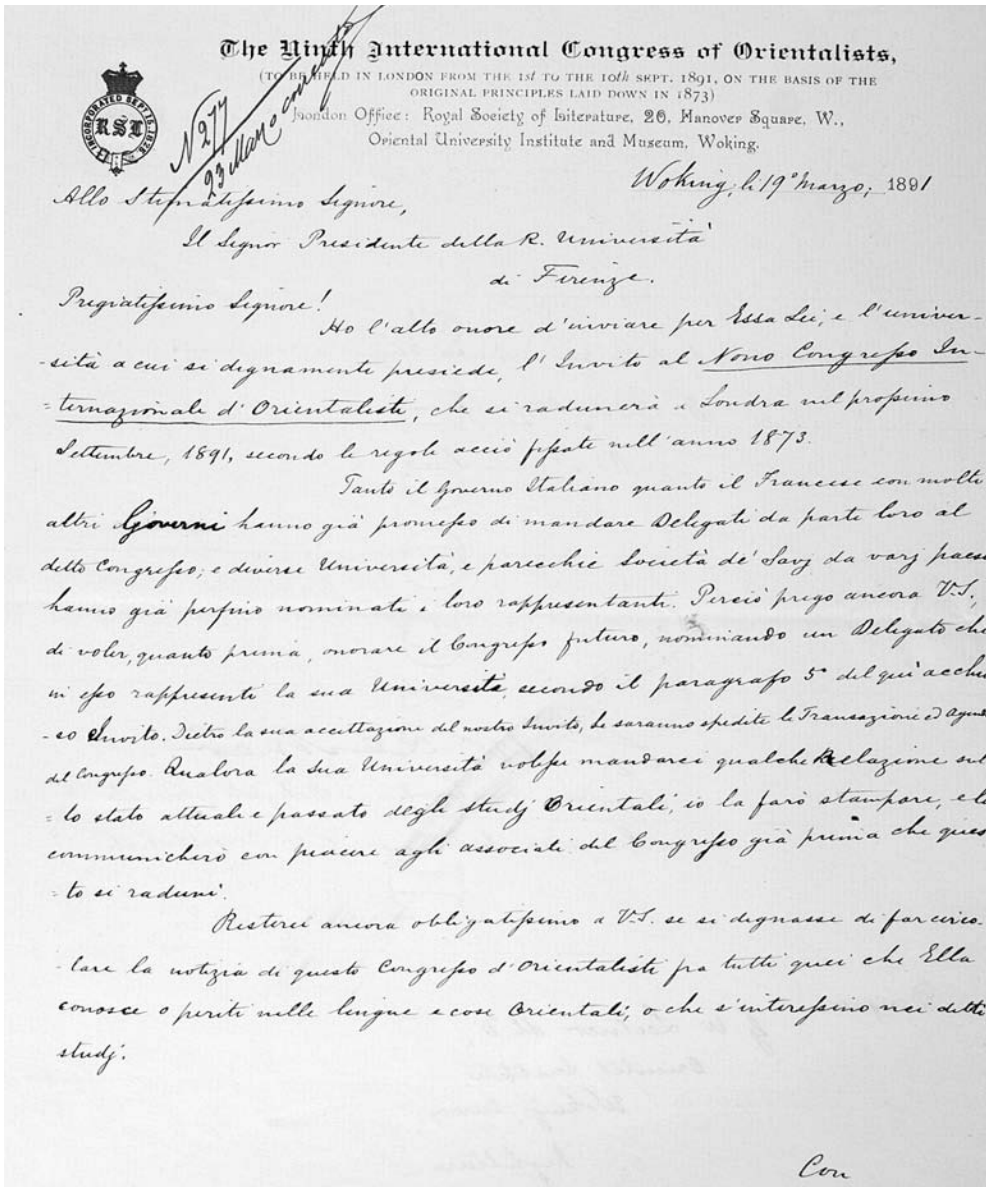 The Ninth International Congress of Orientalists,
(TO BE HELD IN LONDON FROM THE 1st TO THE 10th SEPT. 1891, ON THE BASIS OF THE
ORIGINAL PRINCIPLES LAID DOWN IN 1873)
London Office: Royal Society of Literature, 20, Hanover Square, W.,
Oriental University Institute and Museum, Woking.
INCORPORATED SEPT. 15. 1826.
RSL
N 277
23 Marzo
Woking, li 19° Marzo, 1891
Allo Stimatissimo Signore,
Il Signor Presidente della R. Università
di Firenze.
Pregiatissimo Signore!
Ho l'alto onore d'inviare per Essa Lei, e l'univer-
-sità a cui si degnamente presiede, l'Invito al Nono Congresso In-
=ternazionale d'Orientalisti, che si radunerà a Londra nel prossimo
Settembre, 1891, secondo le regole acciò fissate nell'anno 1873.
Tanto il Governo Italiano quanto il Francese con molti
altri Governi hanno già promesso di mandare Delegati da parte loro al
detto Congresso; e diverse Università, e parecchie Società de' Savj da varj paesi
hanno già persino nominati i loro rappresentanti. Perciò prego ancora V.S.,
di voler, quanto prima, onorare il Congresso futuro, nominando un Delegato che
in esso rappresenti la sua Università, secondo il paragrafo 5° del quì acchiu
-so Invito. Dietro la sua accettazione del nostro Invito, Le saranno spedite le Transazione ed
del Congresso. Qualora la Sua Università volesse mandarci qualche Relazione sul
=lo stato attuale e passato degli studj Orientali, io la farò stampare, e la
communicherò con piacere agli associati del Congresso già prima che ques
=to si raduni.
Resterei ancora obbligatissimo a V.S. se si degnasse di far circo-
-lare la notizia di questo Congresso d'Orientalisti fra tutti quei che Ella
conosce o periti nelle lingue e cose Orientali, o che s'interessino nei detti
studj.
Con